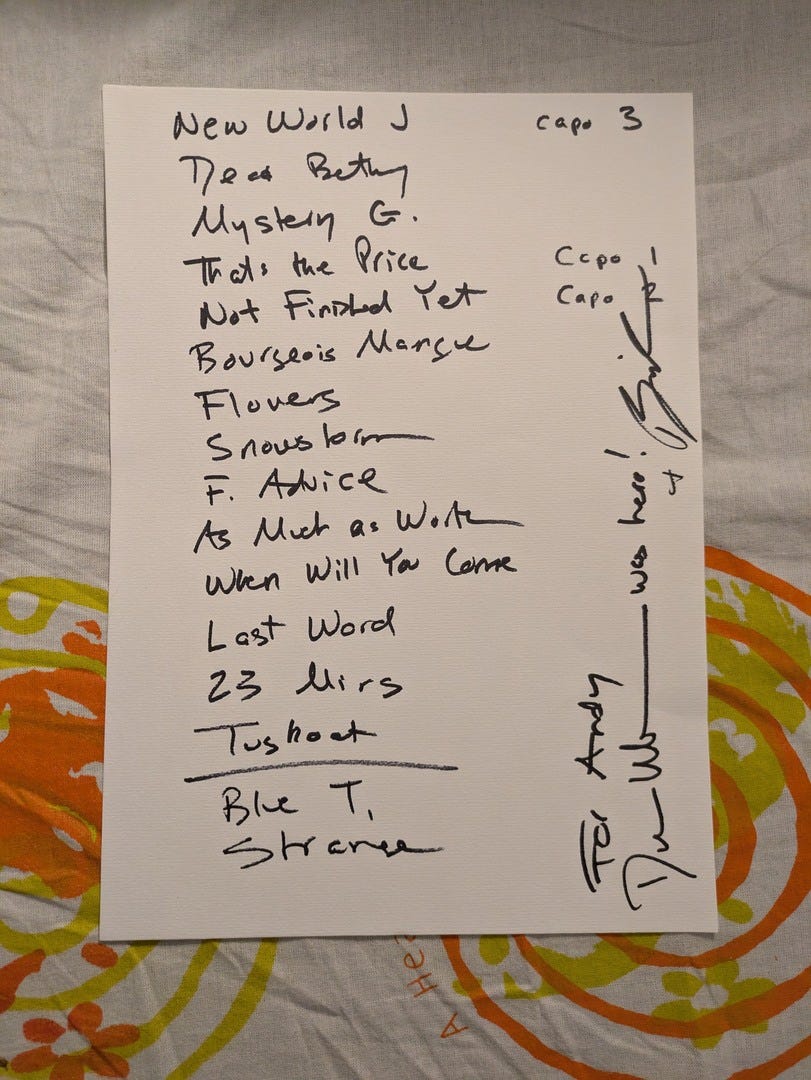 New World J capo 3
Dear Betty
Mystery G.
That's the Price Capo 1
Not Finished Yet Capo 2
Bourgeois Mangue
Flowers
Snowstorm
F. Advice
As Much as Worth
When Will You Come
Last Word
23 Mins
Tugboat
Blue T.
Strange
For Andy
was here! +
A Hea